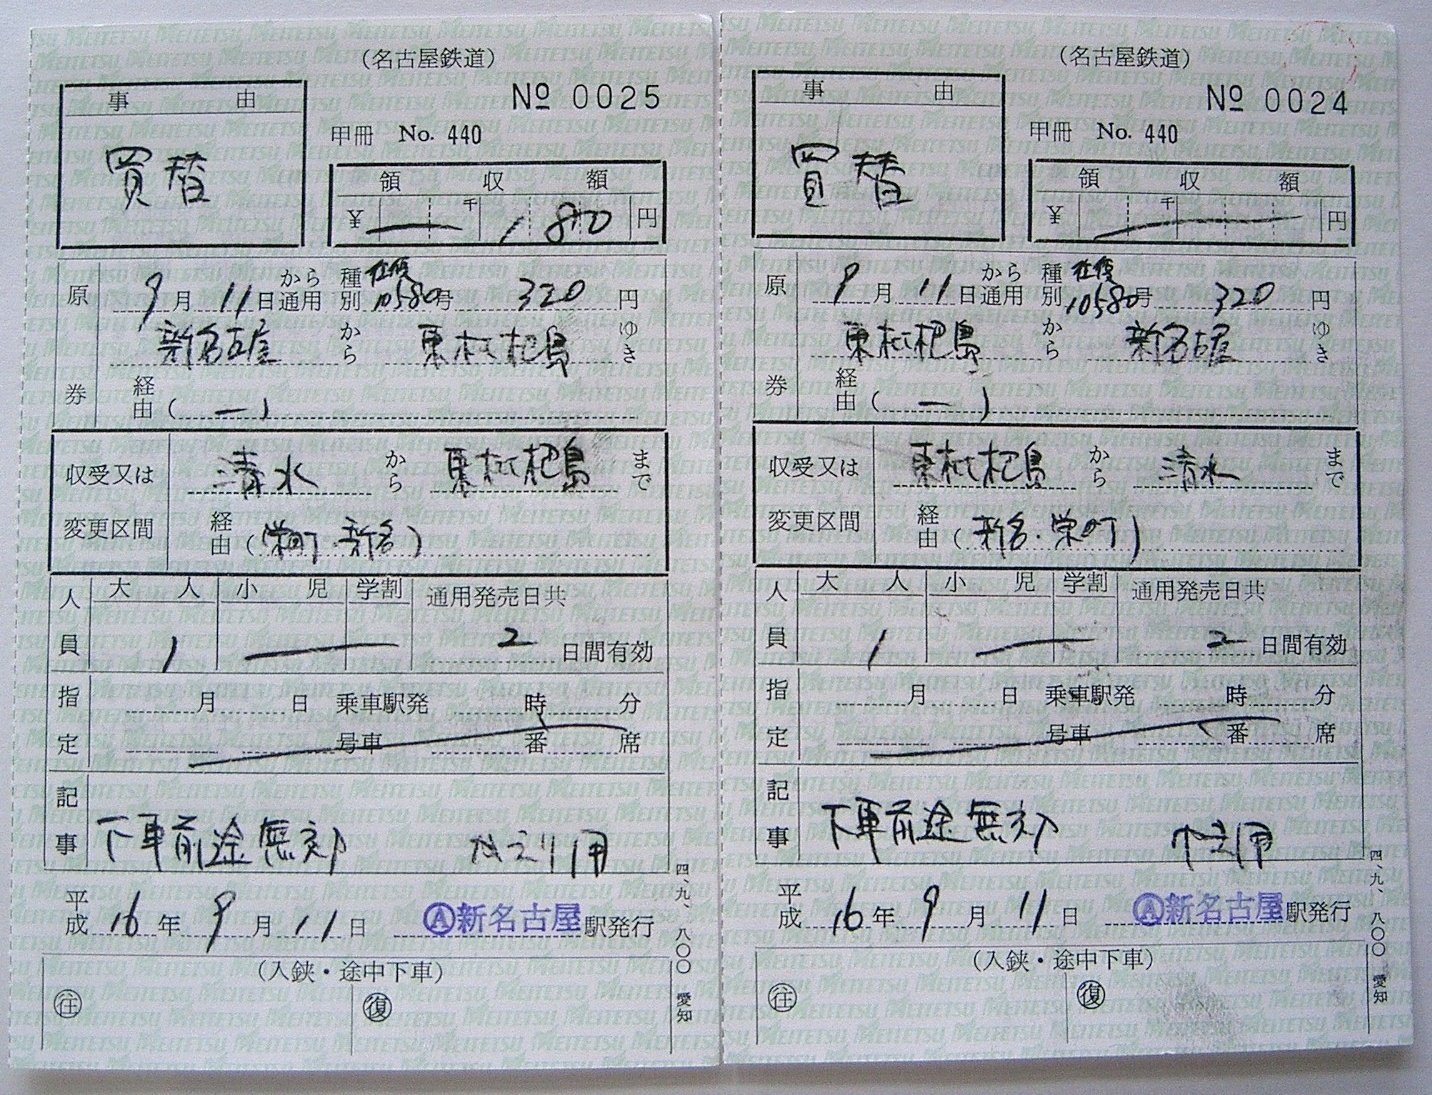 (名古屋鉄道)
事 由
№ 0025
甲冊 No. 440
買替
領 収 額
¥ 千 1800 円
原券
9月11日から通用
種別 往復 10580号 320円
新名古屋から東枇杷島ゆき
経由(—)
収受又は変更区間
清水から東枇杷島まで
経由(栄町・新名)
人員 大人 小児 学割 通用発売日共
1 2日間有効
指定 月 日 乗車駅発 時 分
号車 番 席
記事 下車前途無効
平成16年9月11日 Ⓐ新名古屋駅発行
(入鋏・途中下車)
往 復
四九、八〇〇 愛知
(名古屋鉄道)
事 由
№ 0024
甲冊 No. 440
買替
領 収 額
¥ 千 円
原券
9月11日から通用
種別 往復 10580号 320円
東枇杷島から新名古屋ゆき
経由(—)
収受又は変更区間
東枇杷島から清水まで
経由(新名・栄町)
人員 大人 小児 学割 通用発売日共
1 2日間有効
指定 月 日 乗車駅発 時 分
号車 番 席
記事 下車前途無効
平成16年9月11日 Ⓐ新名古屋駅発行
(入鋏・途中下車)
往 復
四九、八〇〇 愛知